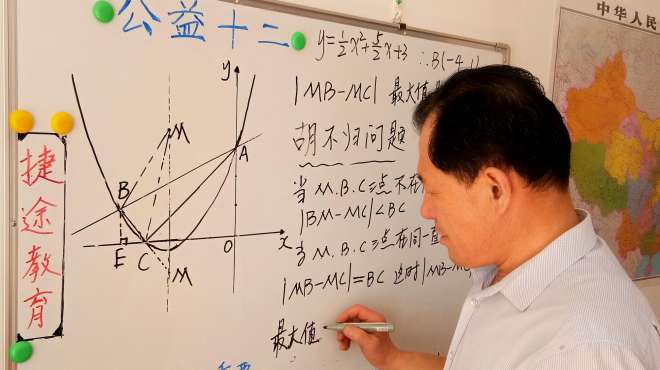 公益十二
中华人民
y=½x²+5/2x+3 ∴B(-4,1)
|MB-MC| 最大值
胡不归问题
当M.B.C三点不在
|BM-MC|<BC
当M.B.C三点在同一直
|MB-MC|=BC 这时|MB-MC
最大值
捷途教育
y
M
A
B
E
C
O
x
M